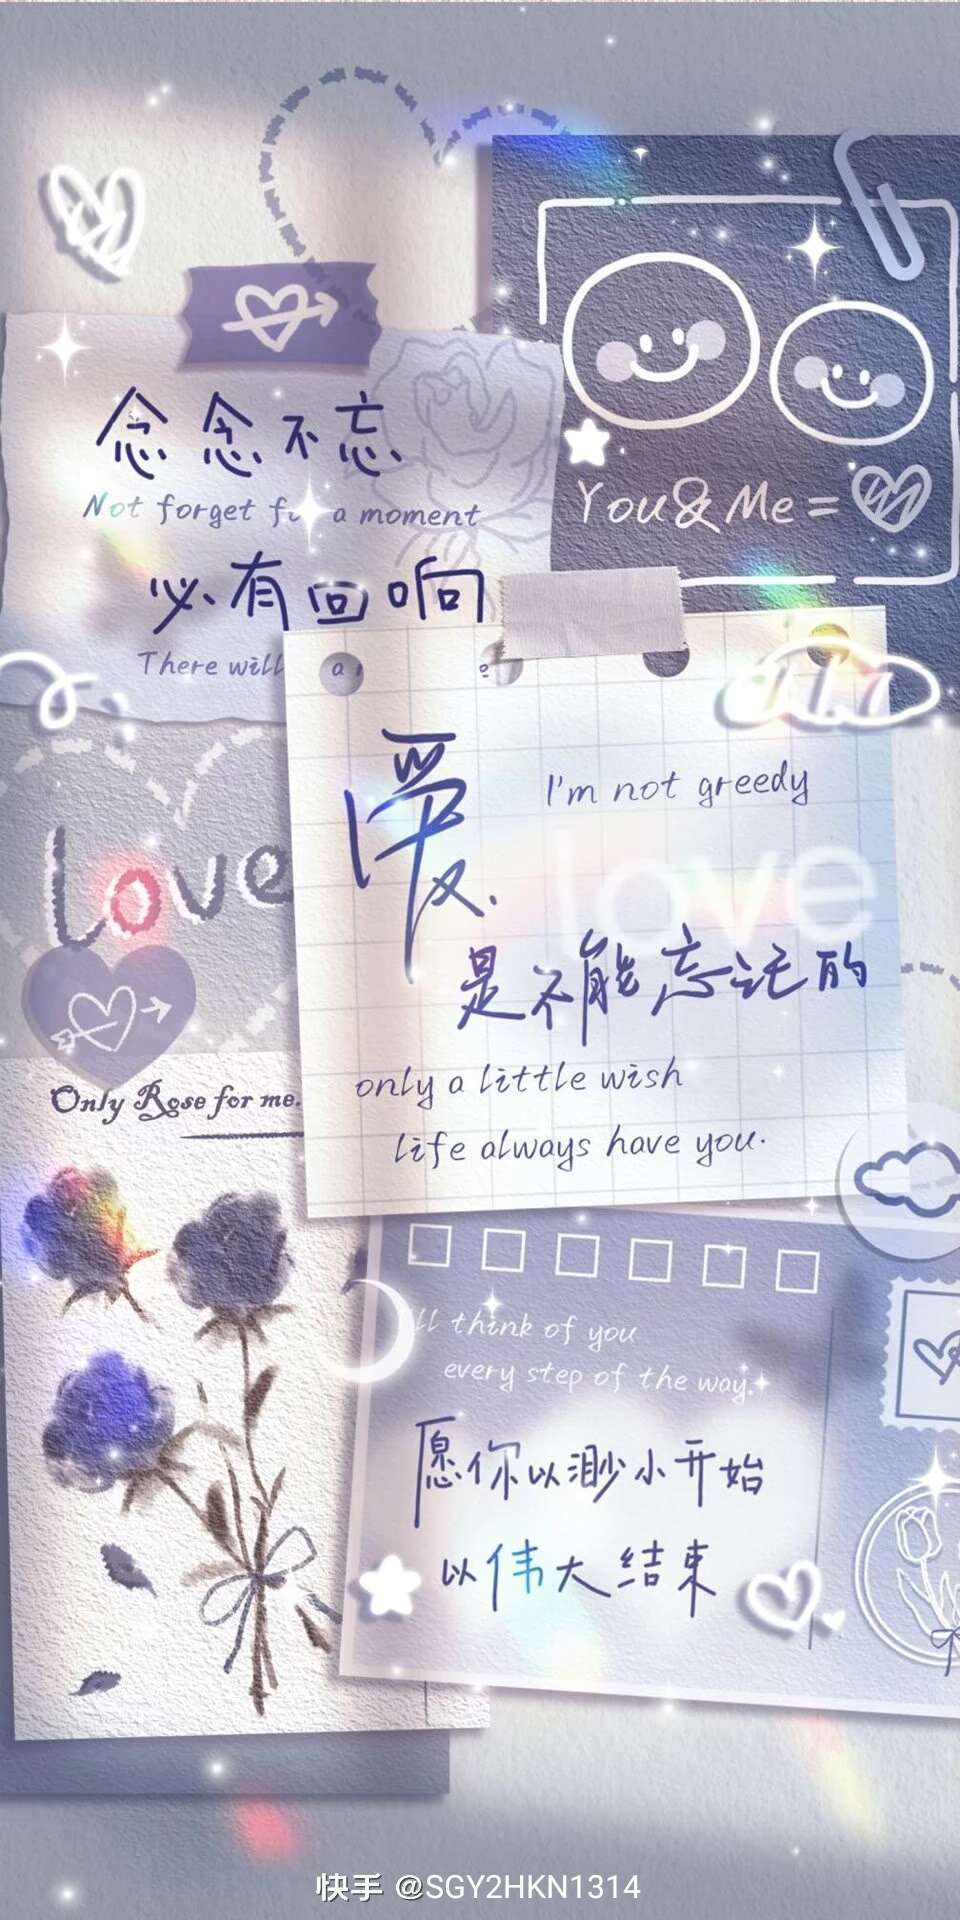 念念不忘
Not forget a moment
必有回响
There will a
You&Me=
爱
I'm not greedy
love
是不能忘记的
only a little wish
life always have you.
Love
Only Rose for me.
think of you
every step of the way.
愿你以渺小开始
以伟大结束
快手 @SGY2HKN1314